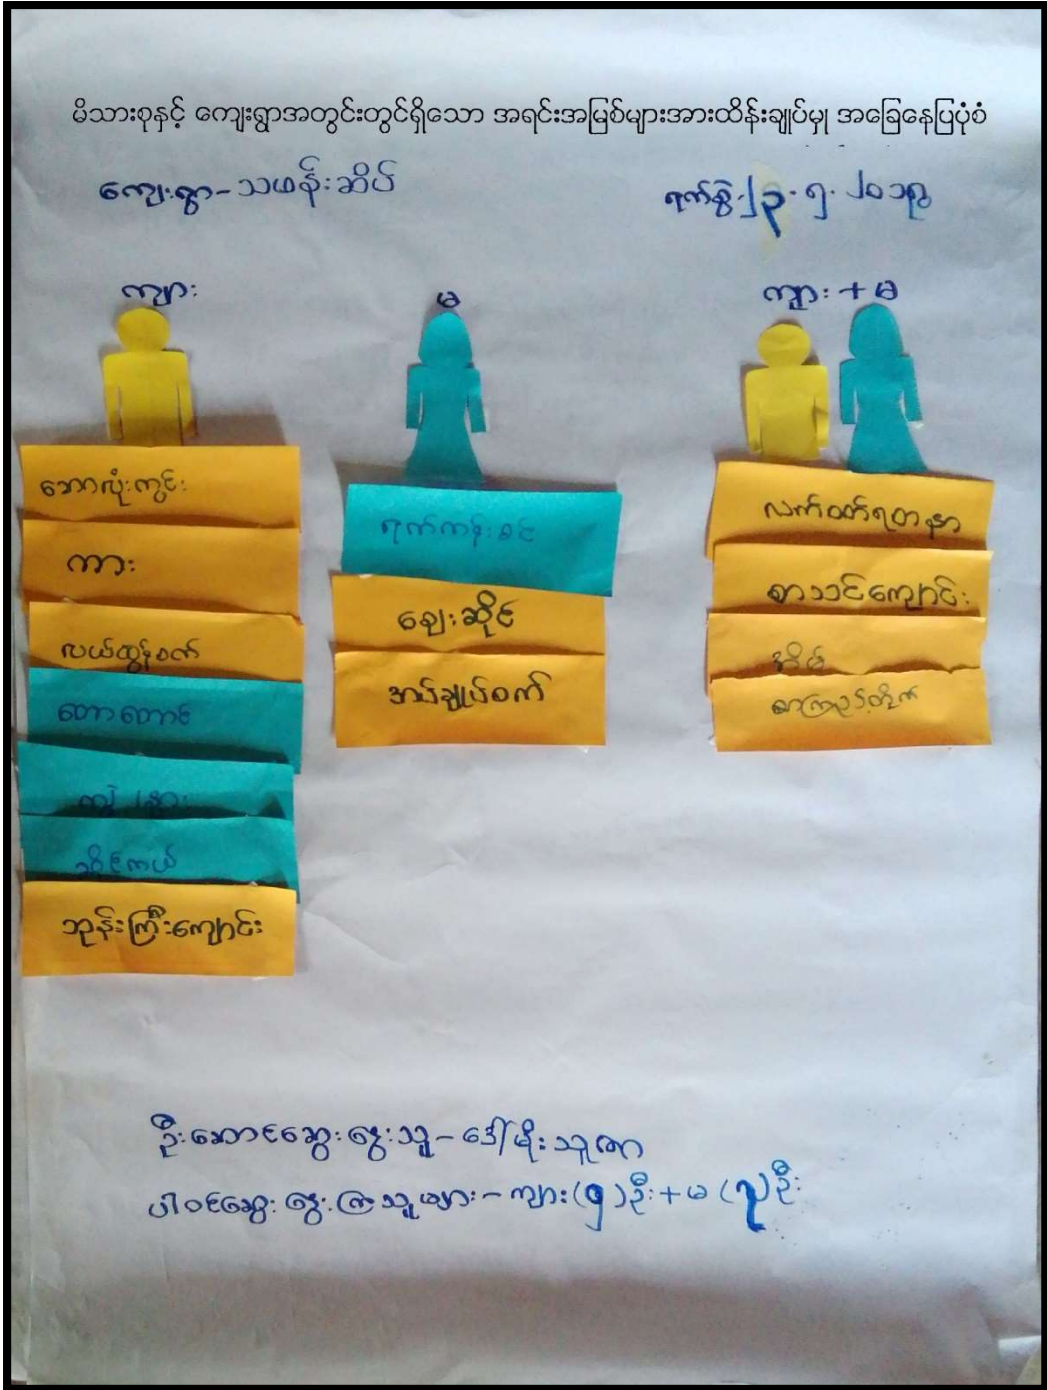 မိသားစုနှင့် ကျေးရွာအတွင်းတွင်ရှိသော အရင်းအမြစ်များအားထိန်းချုပ်မှု အခြေနေပြပုံစံ
ကျေးရွာ-သဖန်းဆိပ်
ရက်စွဲ-၂၃.၅.၂၀၁၅
ကျား
မ
ကျား + မ
ဘောလုံးကွင်း
ကား
လယ်ထွန်စက်
တောတောင်
ကျွဲ/နွား
ဆိုင်ကယ်
ဘုန်းကြီးကျောင်း
ရက်ကန်းစင်
ဈေးဆိုင်
အပ်ချုပ်စက်
လက်ဝတ်ရတနာ
စာသင်ကျောင်း
အိမ်
စာကြည့်တိုက်
ဦးဆောင်ဆွေးနွေးသူ-ဒေါ်မိုးသူဇာ
ပါဝင်ဆွေးနွေးကြသူများ-ကျား(၅)ဦး+မ(၃)ဦး